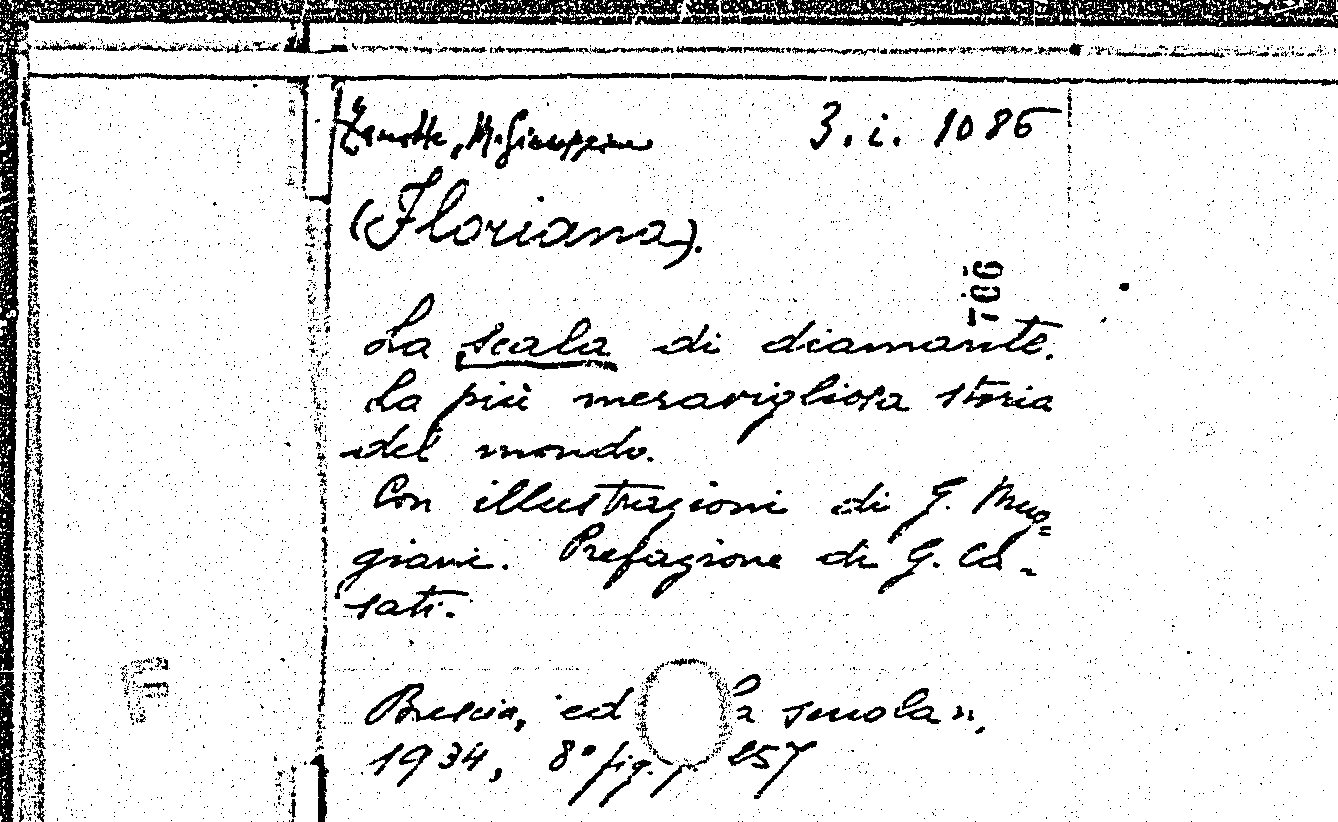 Zanotti, M. Giuseppina 3. i. 1086
(Floriana).
706
La scala di diamante.
La più meravigliosa storia
del mondo.
Con illustrazioni di G. Mug=
giani. Prefazione di G. Ca-
sati.
F
Brescia, ed La scuola",
1934, 8° fig. p. 257